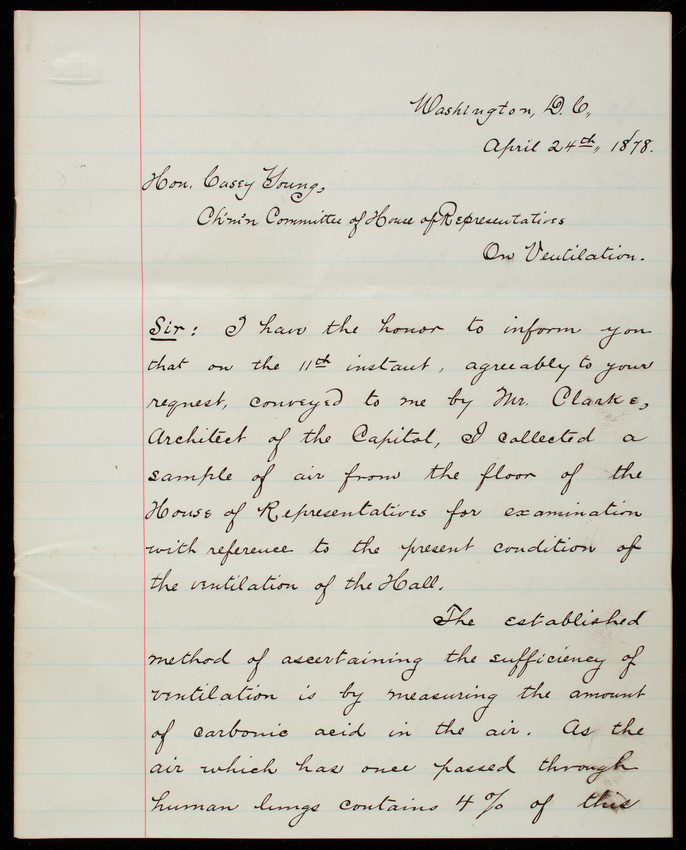 Washington, D. C.,
April 24th, 1878.
Hon. Casey Young,
Ch'm'n Committee of House of Representatives
On Ventilation.
Sir: I have the honor to inform you
that on the 11th instant, agreeably to your
request, conveyed to me by Mr. Clarke,
Architect of the Capitol, I collected a
sample of air from the floor of the
House of Representatives for examination
with reference to the present condition of
the ventilation of the Hall.
The established
method of ascertaining the sufficiency of
ventilation is by measuring the amount
of carbonic acid in the air. As the
air which has once passed through
human lungs contains 4 % of this